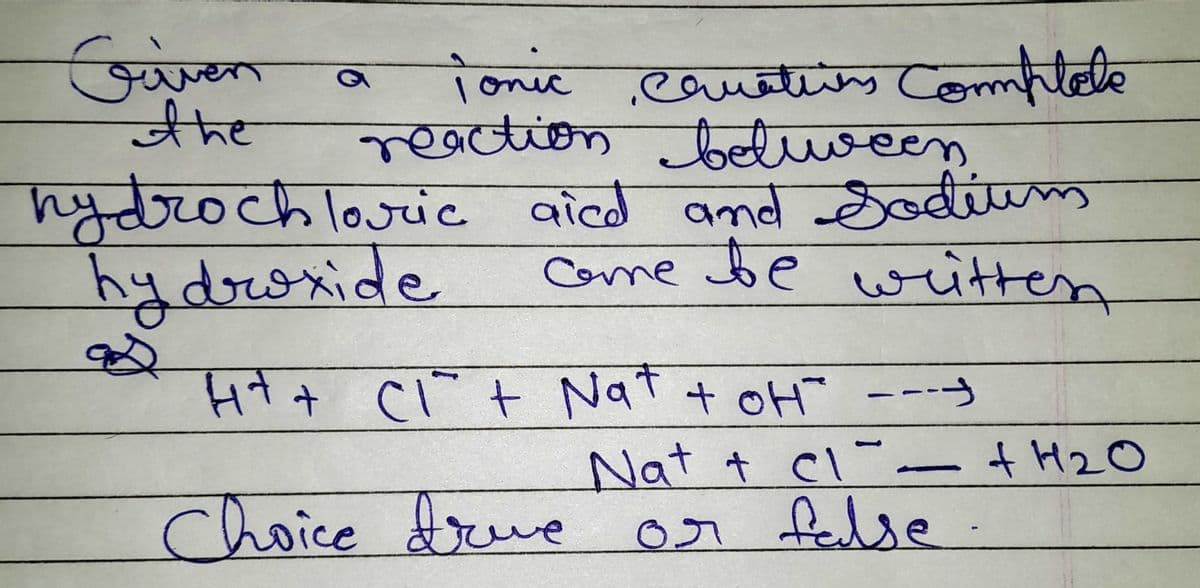 Given a ionic equation Complete
the reaction between
hydrochloric aicd and Sodium
hydroxide come be written
as
H+ + Cl- + Na+ + OH- --->
Na+ + Cl- — + H2O
Choice true or false.